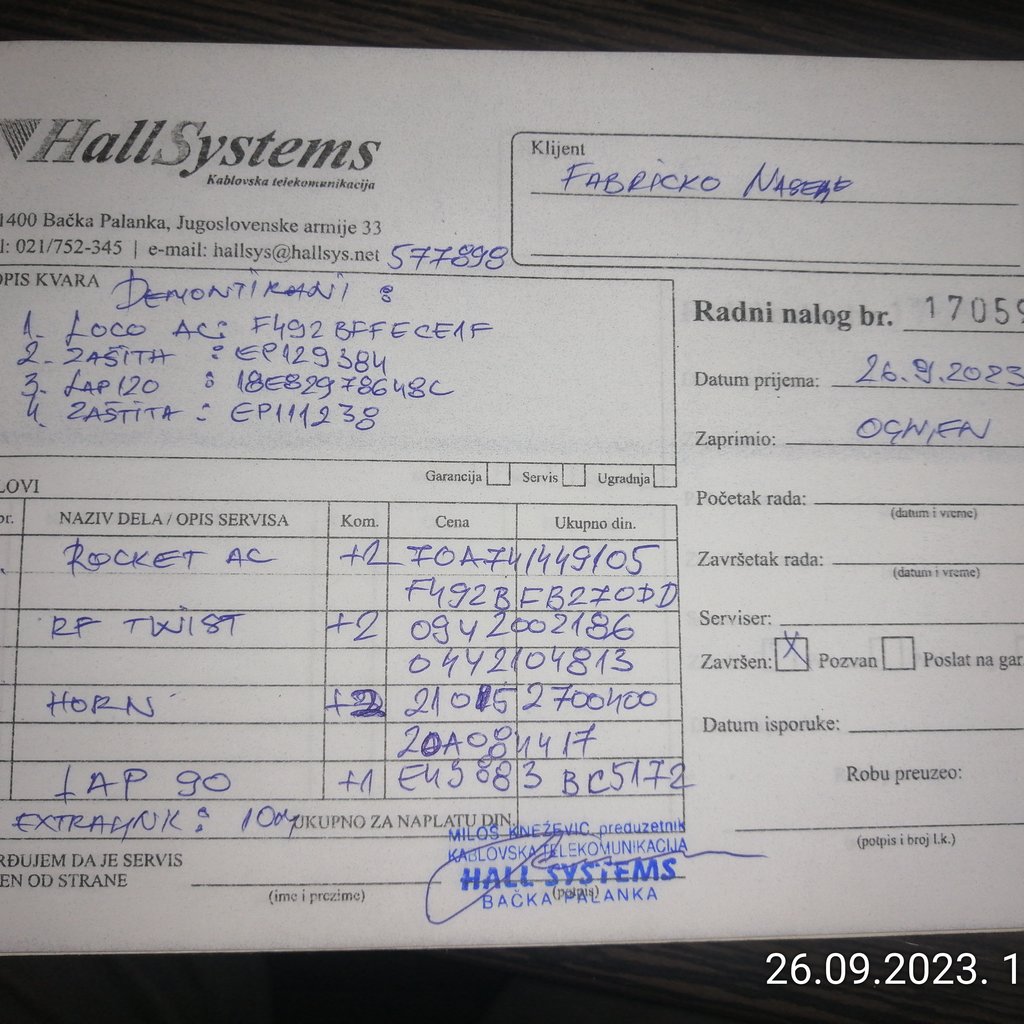 HallSystems
Kablovska telekomunikacija
1400 Bačka Palanka, Jugoslovenske armije 33
l: 021/752-345 | e-mail: hallsys@hallsys.net 577898
Klijent
FABRIČKO NASELJE
OPIS KVARA DEMONTIRANI :
1. LOCO AC: F492BFFECE1F
2. ZAŠTITA : EP129384
3. LAP120 : 18E82978648C
4. ZAŠTITA : EP111238
Garancija Servis Ugradnja
Radni nalog br. 17059
Datum prijema: 26.9.2023
Zaprimio: OGNJEN
Početak rada:
(datum i vreme)
Završetak rada:
(datum i vreme)
Serviser:
Završen: X Pozvan Poslat na gar
Datum isporuke:
Robu preuzeo:
(potpis i broj l.k.)
LOVI
br. NAZIV DELA / OPIS SERVISA Kom. Cena Ukupno din.
ROCKET AC +2 70A741449105
F492BFB270DD
RF TWIST +2 0942002186
0442104813
HORN 21015 2700400
20A084417
LAP 90 +1 E43883BC5172
EXTRALINK : 10m UKUPNO ZA NAPLATU DIN.
RĐUJEM DA JE SERVIS
EN OD STRANE
(ime i prezime)
(potpis)
MILOŠ KNEŽEVIĆ preduzetnik
KABLOVSKA TELEKOMUNIKACIJA
HALL SYSTEMS
BAČKA PALANKA
26.09.2023. 1